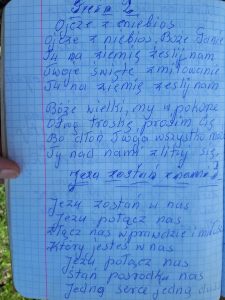 Ojcze z niebios
Ojcze z niebios, Boże Panie
Tu na ziemię ześlij nam
Twoje święte zmiłowanie
Tu na ziemię ześlij nam
Boże wielki, my w pokorze
O Twą troskę prosim Cię
Bo dłoń Twoja wszystko może
Ty nad nami zlituj się.
Jezu zostań z nami
Jezu zostań w nas
Jezu połącz nas
Złącz nas w prawdzie i miłości
Który jesteś w nas
Jezu połącz nas
Stań pośród nas
Jedną serce jedną